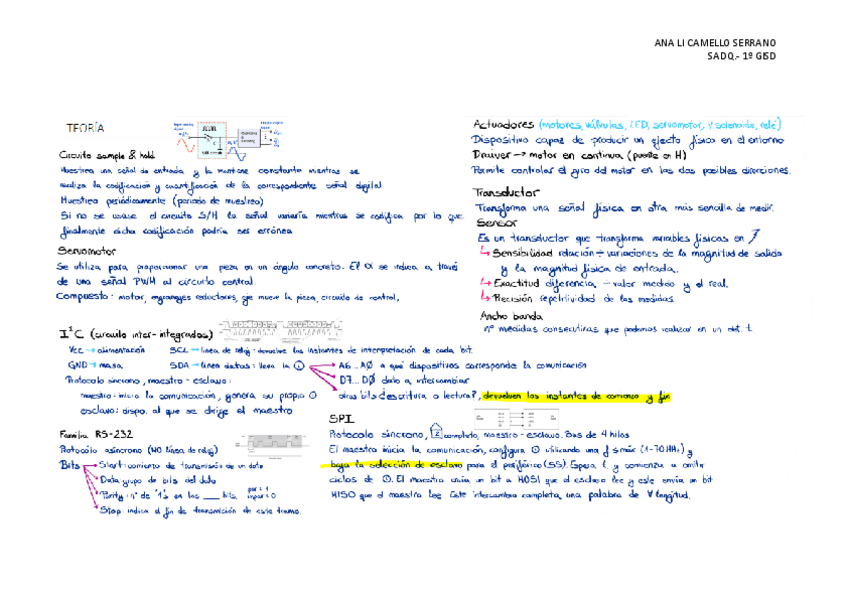 ANA LI CAMELLO SERRANO
SADQ.- 1º GISD
TEORÍA
Circuito sample & hold
Muestrea una señal de entrada y la mantiene constante mientras se
realiza la codificación y cuantificación de la correspondiente señal digital
Muestrea periódicamente (periodo de muestreo)
Si no se usase el circuito S/H la señal variaría mientras se codifica por lo que
finalmente dicha codificación podría ser errónea
Servomotor
Se utiliza para proporcionar una pieza en un ángulo concreto. El α se indica a través
de una señal PWM al circuito control.
Compuesto: motor, engranajes reductores, eje mueve la pieza, circuito de control,
Actuadores (motores, válvulas, LED, servomotor, v. solenoide, relé)
Dispositivo capaz de producir un efecto físico en el entorno
Drawer → motor en continua (puente en H)
Permite controlar el giro del motor en las dos posibles direcciones.
Transductor
Transforma una señal física en otra más sencilla de medir.
Sensor
Es un transductor que transforma variables físicas en
Sensibilidad relación ÷ variaciones de la magnitud de salida
y la magnitud física de entrada.
Exactitud diferencia ÷ valor medido y el real.
Precisión repetitividad de las medidas.
Ancho banda
nº medidas consecutivas que podemos realizar en un det. t.
I²C (circuito inter-integrados)
Vcc → alimentación SCL → línea de reloj: devuelve los instantes de interpretación de cada bit.
GND → masa SDA → línea datos: lleva la
A6...A0 a qué dispositivos corresponde la comunicación
D7...D0 dato a intercambiar
otros bits ¿escritura o lectura?, devuelven los instantes de comienzo y fin
Protocolo síncrono, maestro-esclavo:
maestro: inicia la comunicación, genera su propio
esclavo: dispo. al que se dirige el maestro
Familia RS-232
Protocolo asíncrono (NO línea de reloj)
Bits
Start: comienzo de transmisión de un dato
Data: grupo de bits del dato
Parity: nº de '1's en los ___ bits, par = 1 impar = 0
Stop: indica el fin de transmisión de este tramo.
SPI
Protocolo síncrono, completo, maestro-esclavo. Bus de 4 hilos
El maestro inicia la comunicación, configura utilizando una f ≤ máx (1-70 MHz) y
baja la selección de esclavo para el periférico (SS). Espera t. y comienza a emitir
ciclos de . El maestro envía un bit a MOSI que el esclavo lee y este envía un bit
MISO que el maestro lee. Este intercambio completa una palabra de ∀ longitud.